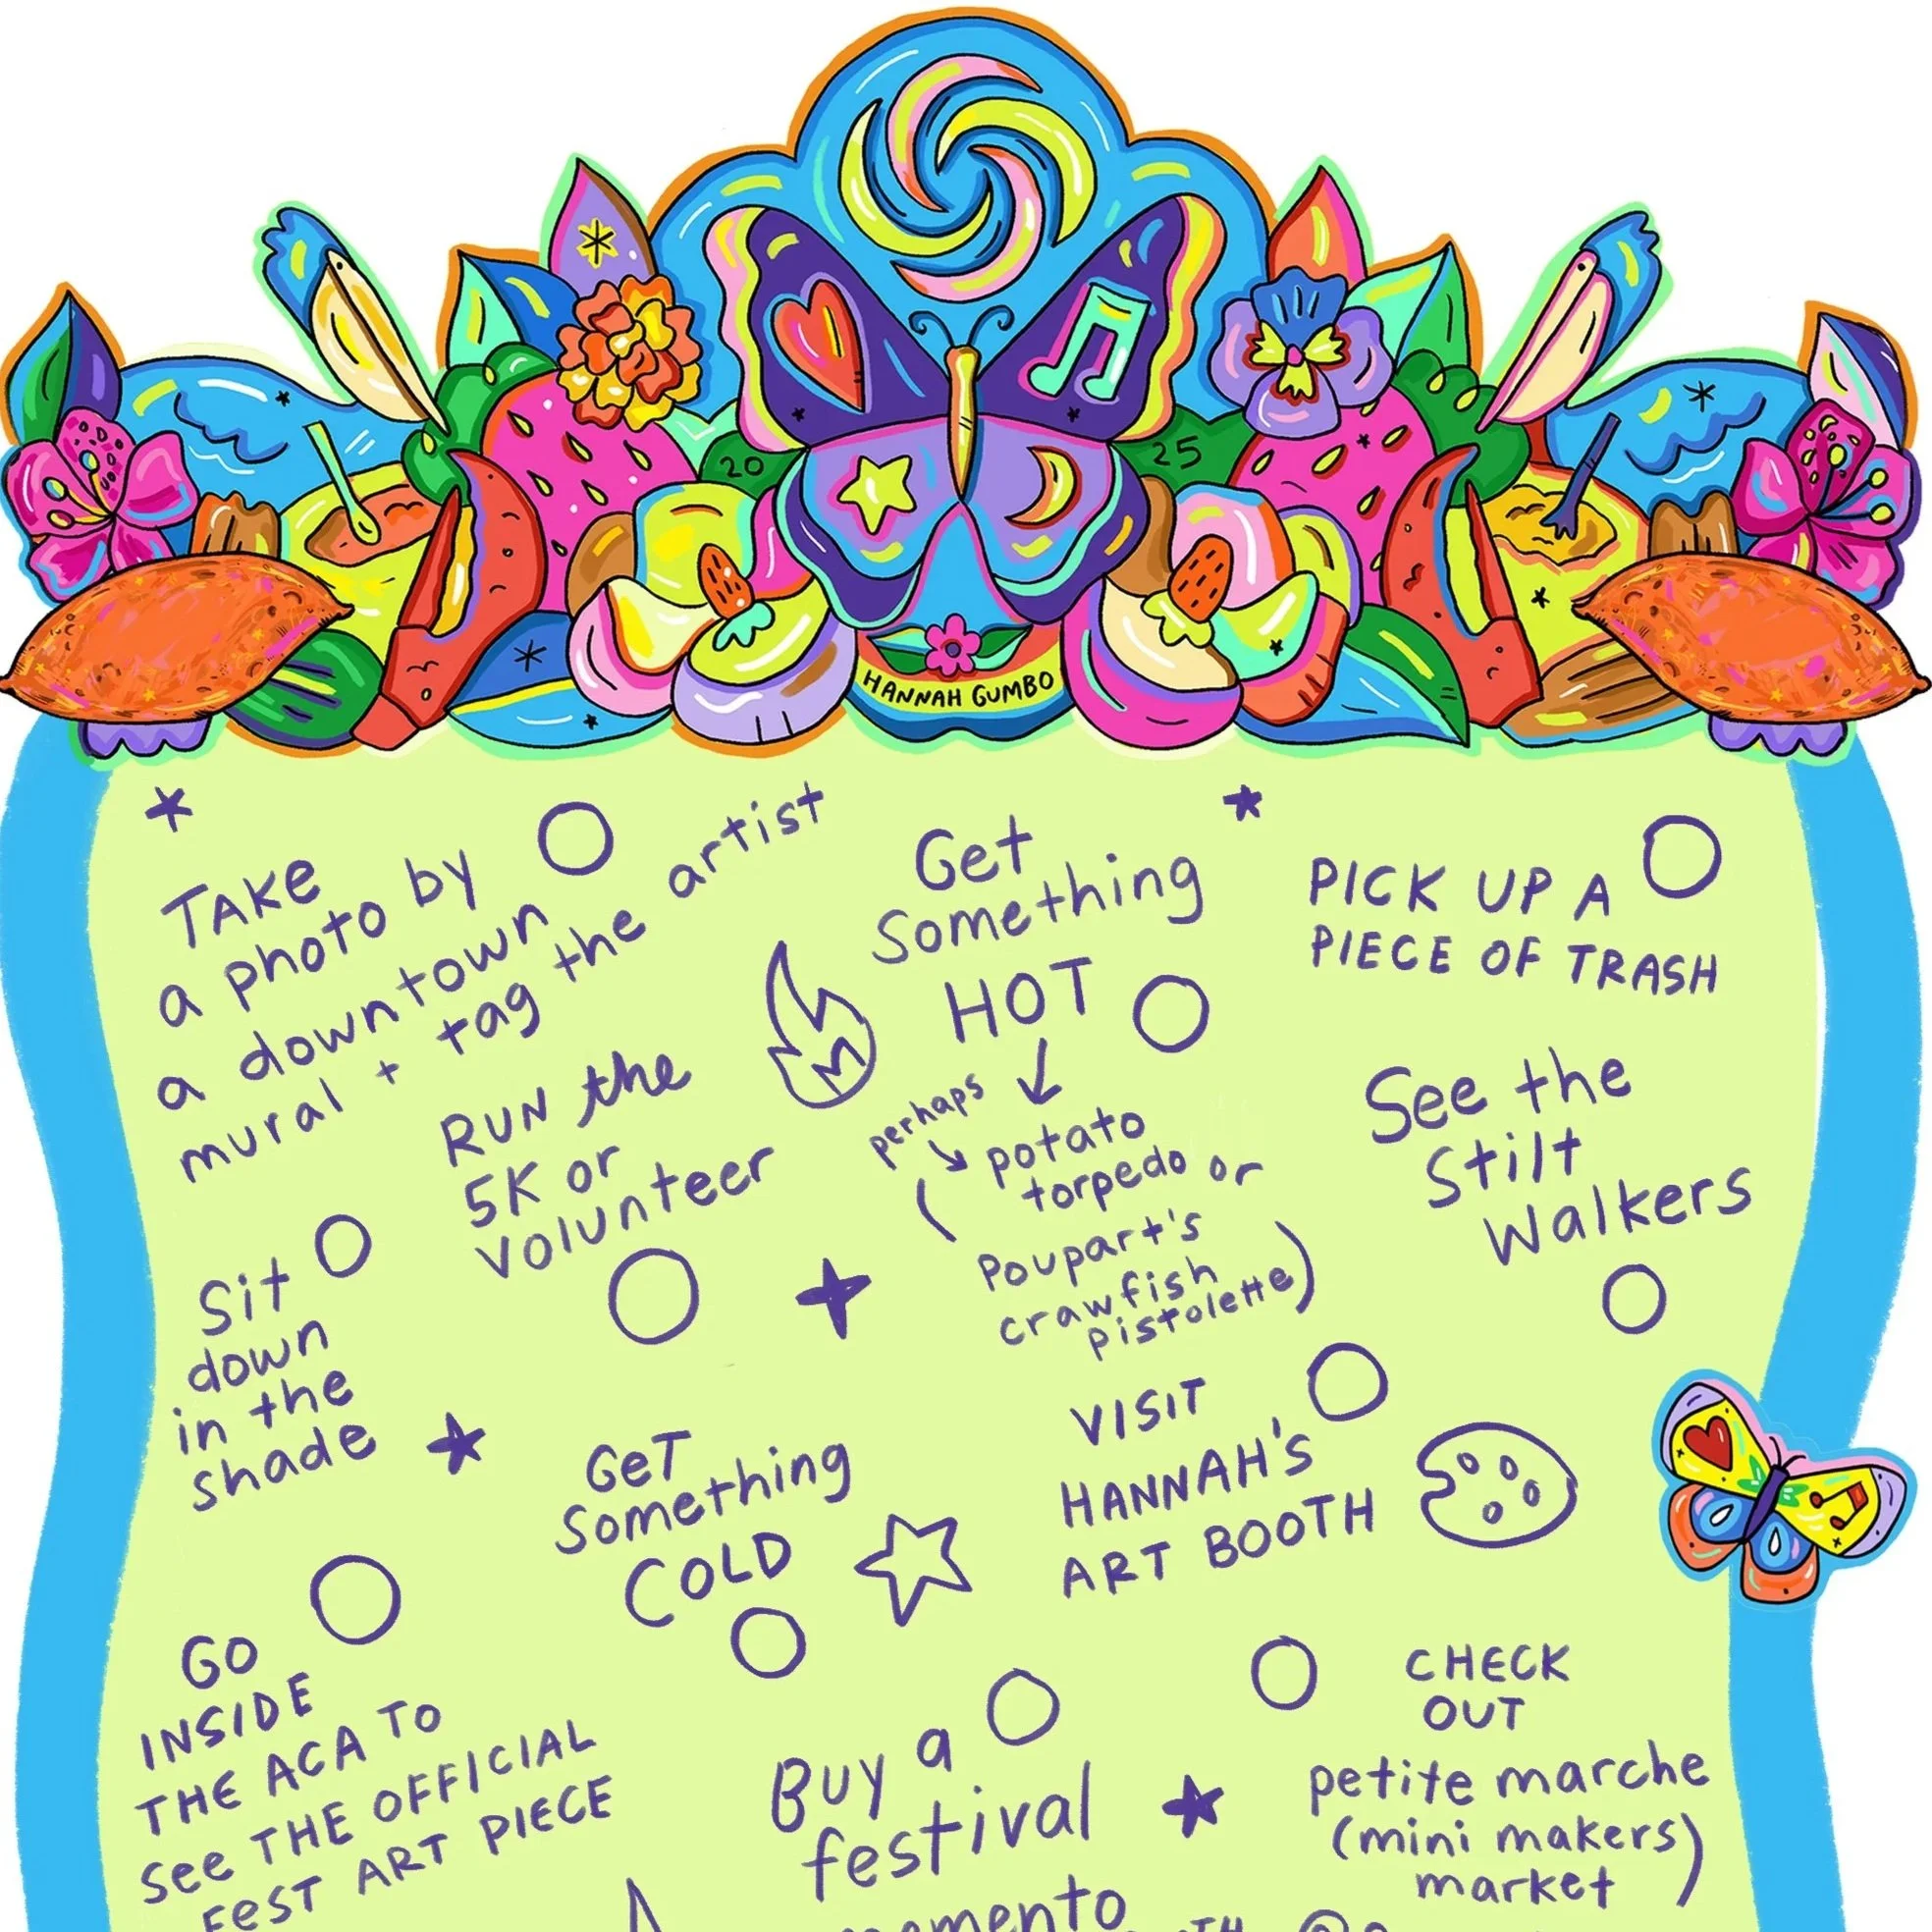 20
25
HANNAH GUMBO
TAKE
a photo by
a downtown
mural + tag the artist
Get
Something
HOT
perhaps
(potato
torpedo or
Poupart's
crawfish
pistolette)
PICK UP A
PIECE OF TRASH
RUN the
5K or
volunteer
See the
Stilt
Walkers
Sit
down
in the
shade
GeT
Something
COLD
VISIT
HANNAH'S
ART BOOTH
GO
INSIDE
THE ACA TO
see THE OFFICIAL
FeST ART PIECE
Buy a
festival
momento
CHECK
OUT
petite marche
(mini makers)
market